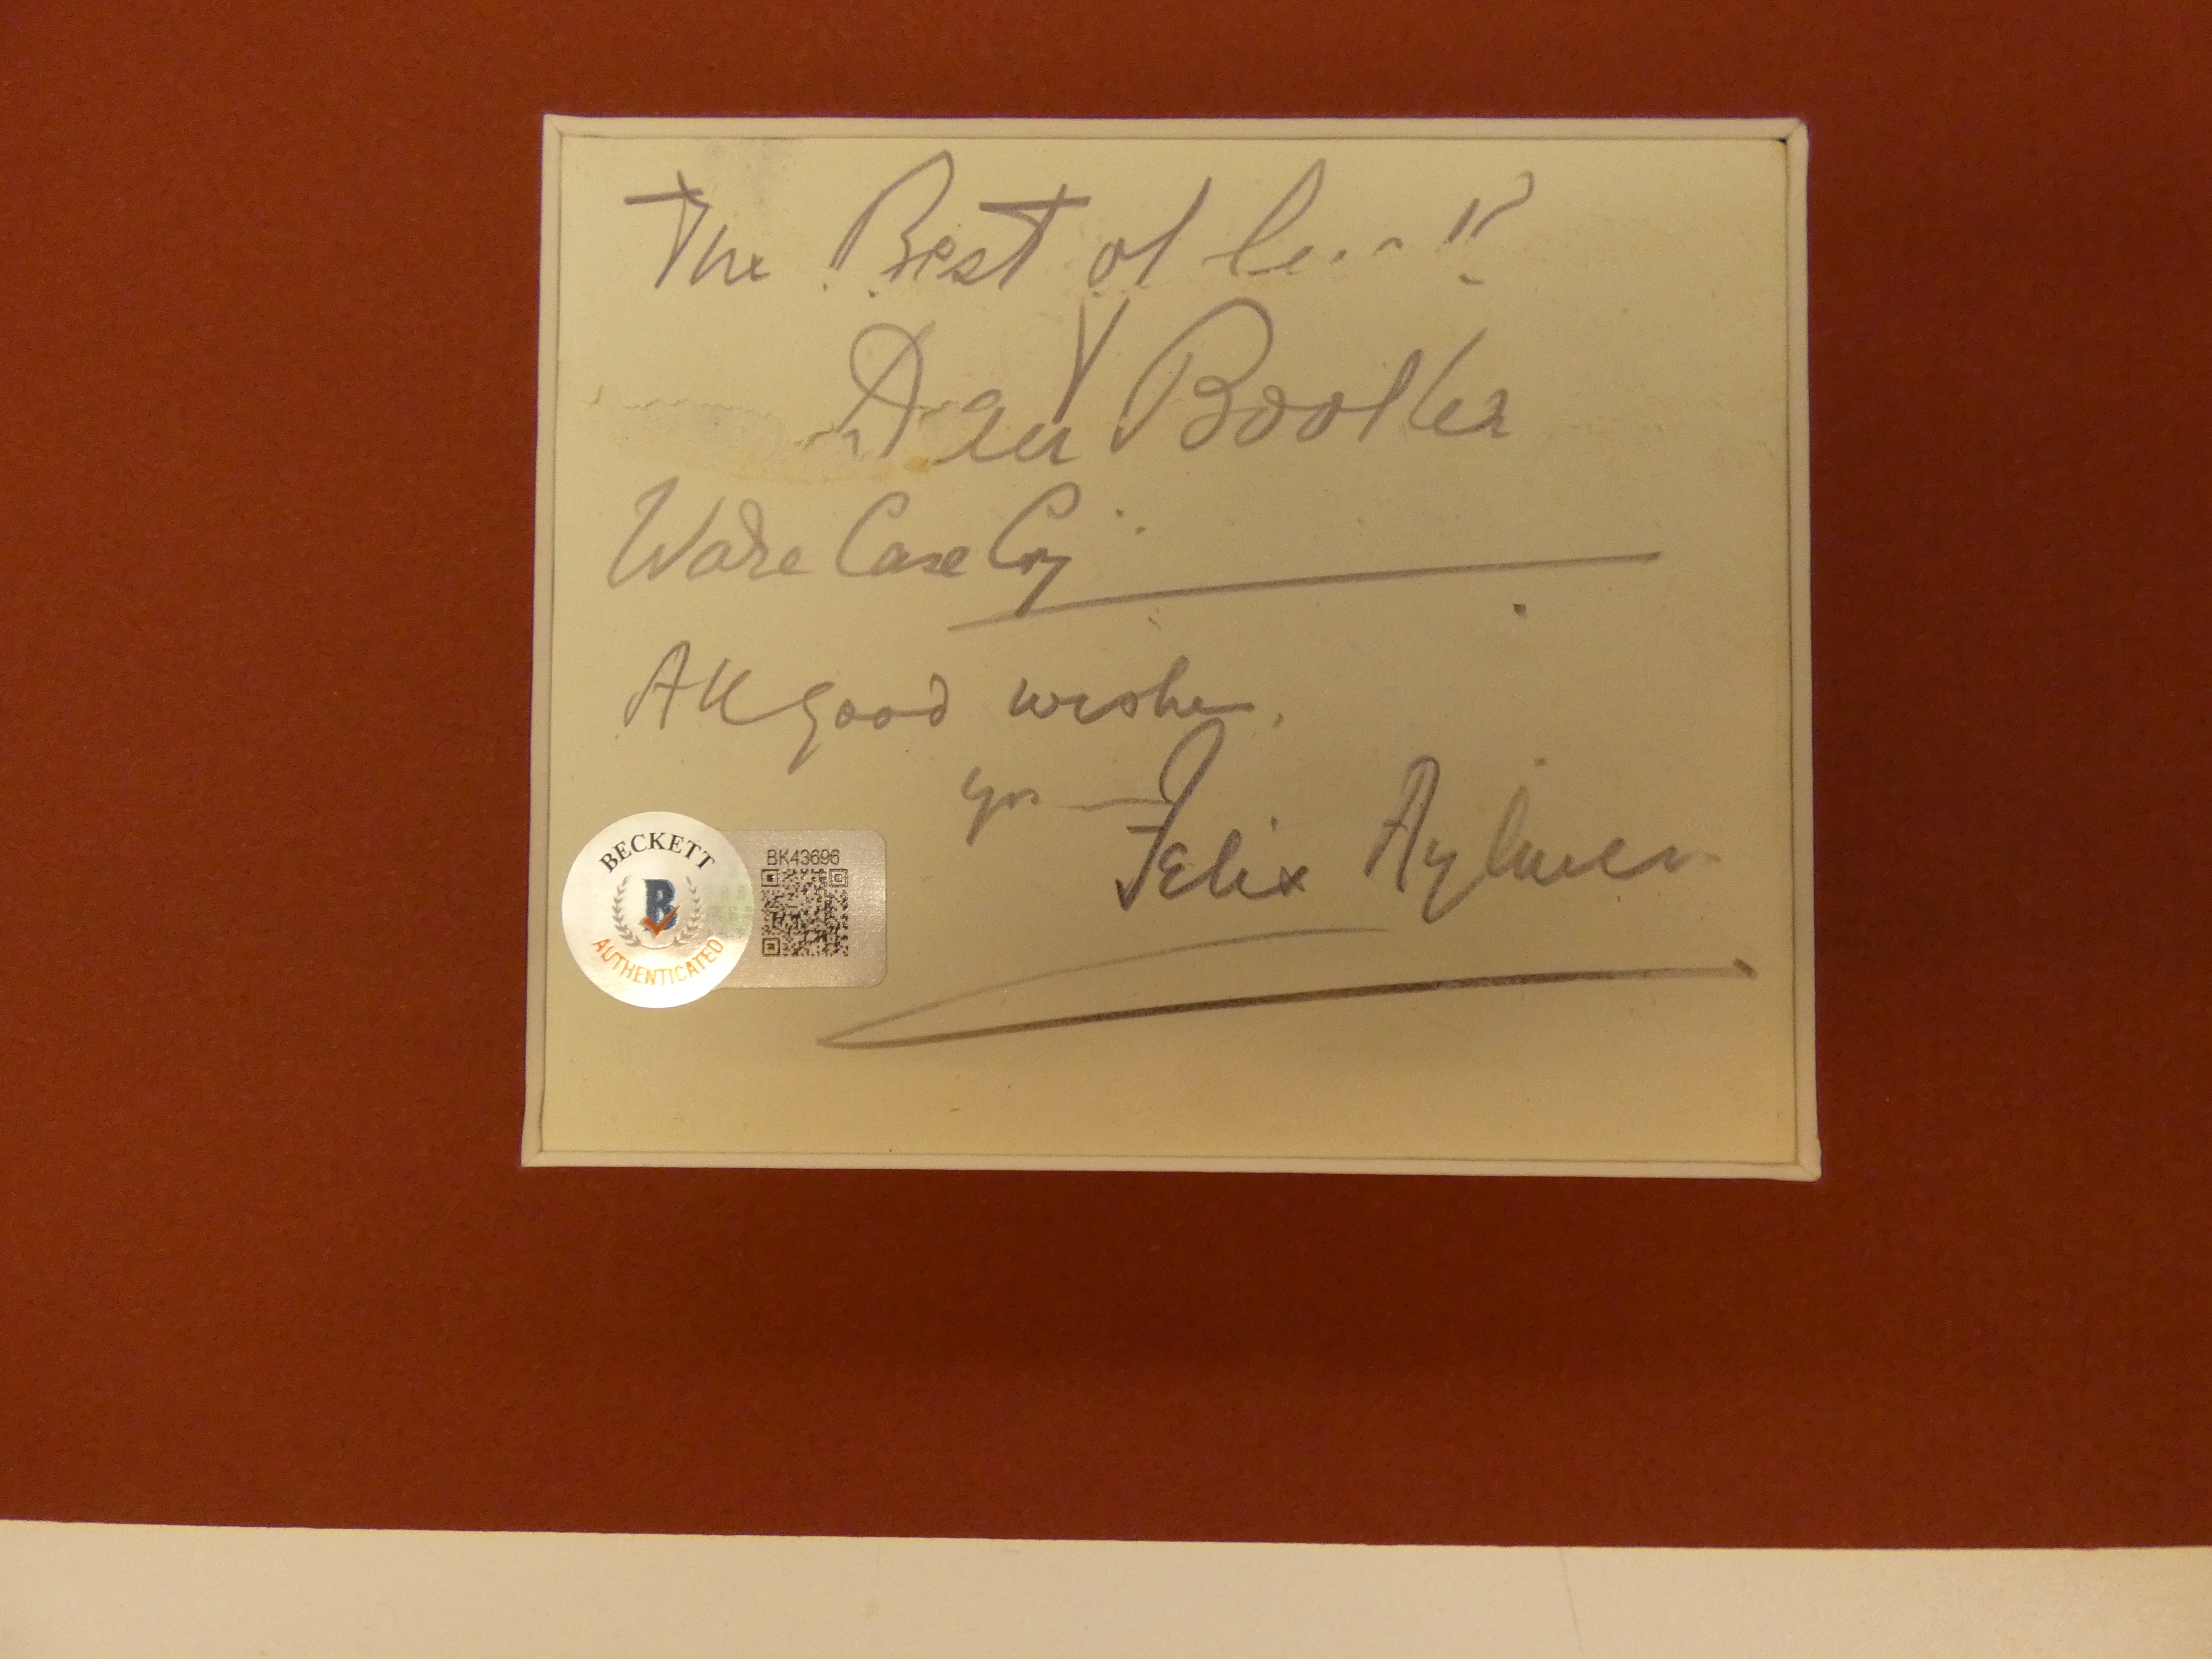 The Best of
Booller
Ware Case Coy
All good wishes,
yrs
Felix Aylmer
BECKETT
B
AUTHENTICATED
BK43696